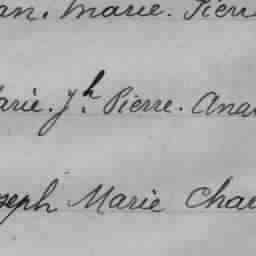 an. Marie. Pierr
arie. Jh. Pierre. Ana
seph Marie Cha